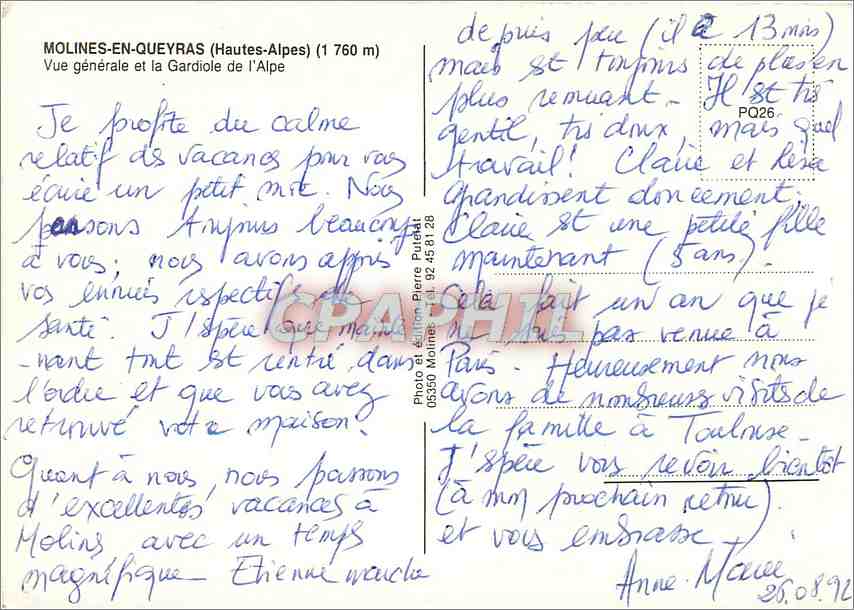 MOLINES-EN-QUEYRAS (Hautes-Alpes) (1 760 m)
Vue générale et la Gardiole de l'Alpe
Je profite du calme
relatif des vacances pour vous
écrire un petit mot. Nous
pensons toujours beaucoup
à vous. nous avons appris
vos ennuis respectifs de
santé. J'espère que mainte
-nant tout est rentré dans
l'ordre et que vous avez
retrouvé votre maison.
Quant à nous, nous passons
d'excellentes vacances à
Molins avec un temps
magnifique - Etienne marche
depuis peu (il a 13 mois)
mais est toujours de plus en
plus remuant. Il est très
gentil, très doux, mais quel
travail! Claire et
grandissent doucement.
Claire est une petite fille
maintenant (5 ans).
Cela fait un an que je
ne suis pas venue à
Paris. Heureusement nous
avons de nombreuses visites de
la famille à Toulouse -
J'espère vous revoir bientôt
(à mon prochain retour).
et vous embrasse -
Anne-Marie
26.08.92
PQ26
Photo et édition Pierre Putelat
05350 Molines - Tél. 92 45 81 28
CPAPHIL